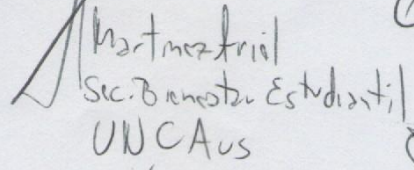 Martinez Ariel
Sec. Bienestar Estudiantil
UNCAus